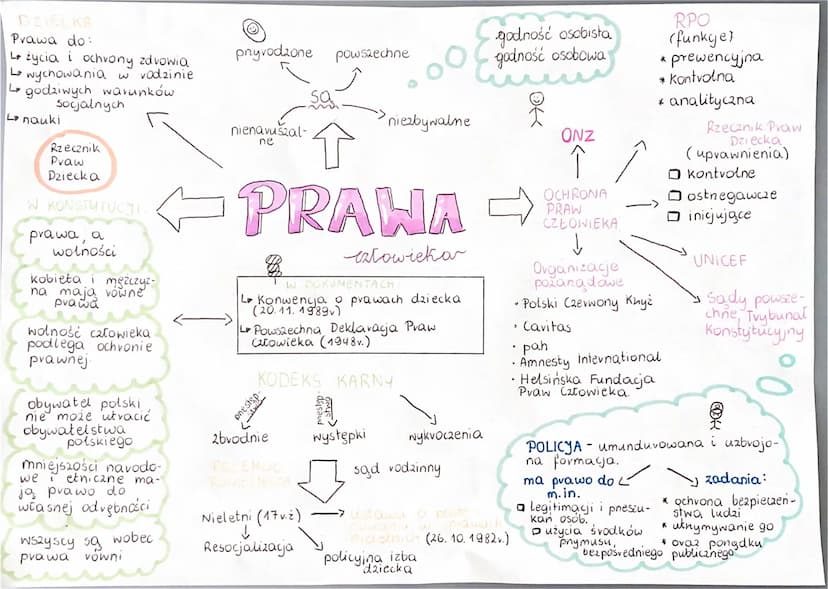 DZIECKA
Prawa do:
↳ życia i ochrony zdrowia
↳ wychowania w rodzinie
↳ godziwych warunków
socjalnych
↳ nauki
Rzecznik
Praw
Dziecka
W KONSTYTUCJI
prawa, a
wolności
kobieta i mężczyz-
na mają równe
prawa
wolność człowieka
podlega ochronie
prawnej
obywatel polski
nie może utracić
obywatelstwa
polskiego
mniejszości narodo-
we i etniczne ma-
ją prawo do
własnej odrębności
wszyscy są wobec
prawa równi
przyrodzone
powszechne
są
nienaruszal-
ne
niezbywalne
PRAWA
człowieka
W DOKUMENTACH
↳ Konwencja o prawach dziecka
(20.11.1989r)
↳ Powszechna Deklaracja Praw
Człowieka (1948r.)
KODEKS KARNY
zbrodnie
występki
wykroczenia
sąd rodzinny
Nieletni (17r.ż)
Ustawa o
(26.10.1982r.)
Resocjalizacja
policyjna izba
dziecka
godność osobista
godność osobowa
RPO
(funkcje)
* prewencyjna
* kontrolna
* analityczna
ONZ
OCHRONA
PRAW
CZŁOWIEKA
Rzecznik Praw
Dziecka
(uprawnienia)
kontrolne
ostrzegawcze
inicjujące
UNICEF
Sądy powsze-
chne, Trybunał
Konstytucyjny
Organizacje
pozarządowe
• Polski Czerwony Krzyż
• Caritas
• pah
• Amnesty International
• Helsińska Fundacja
Praw Człowieka.
POLICJA - umundurowana i uzbrojo-
na formacja.
ma prawo do
m.in.
legitymacji i przeszu-
kań osób.
użycia środków
przymusu
bezpośredniego
zadania:
* ochrona bezpieczeń-
stwa ludzi
* utrzymywanie go
* oraz porządku
publicznego